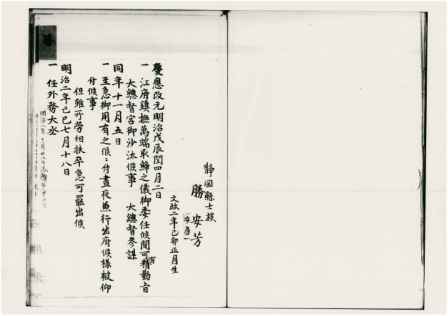 静岡縣士族
勝 安芳
文政六年己卯正月生
慶應改元明治戊辰閏四月二日
一 江府鎮撫萬端取締之儀御委任候間可有精勤旨
大總督宮御沙汰候事 大總督参謀
同年十一月五日
一 至急御用有之候ニ付晝夜兼行出府候様被仰
付候事
但雖所勞相扶早急可罷出候
明治二年己巳七月十八日
一 任外務大丞